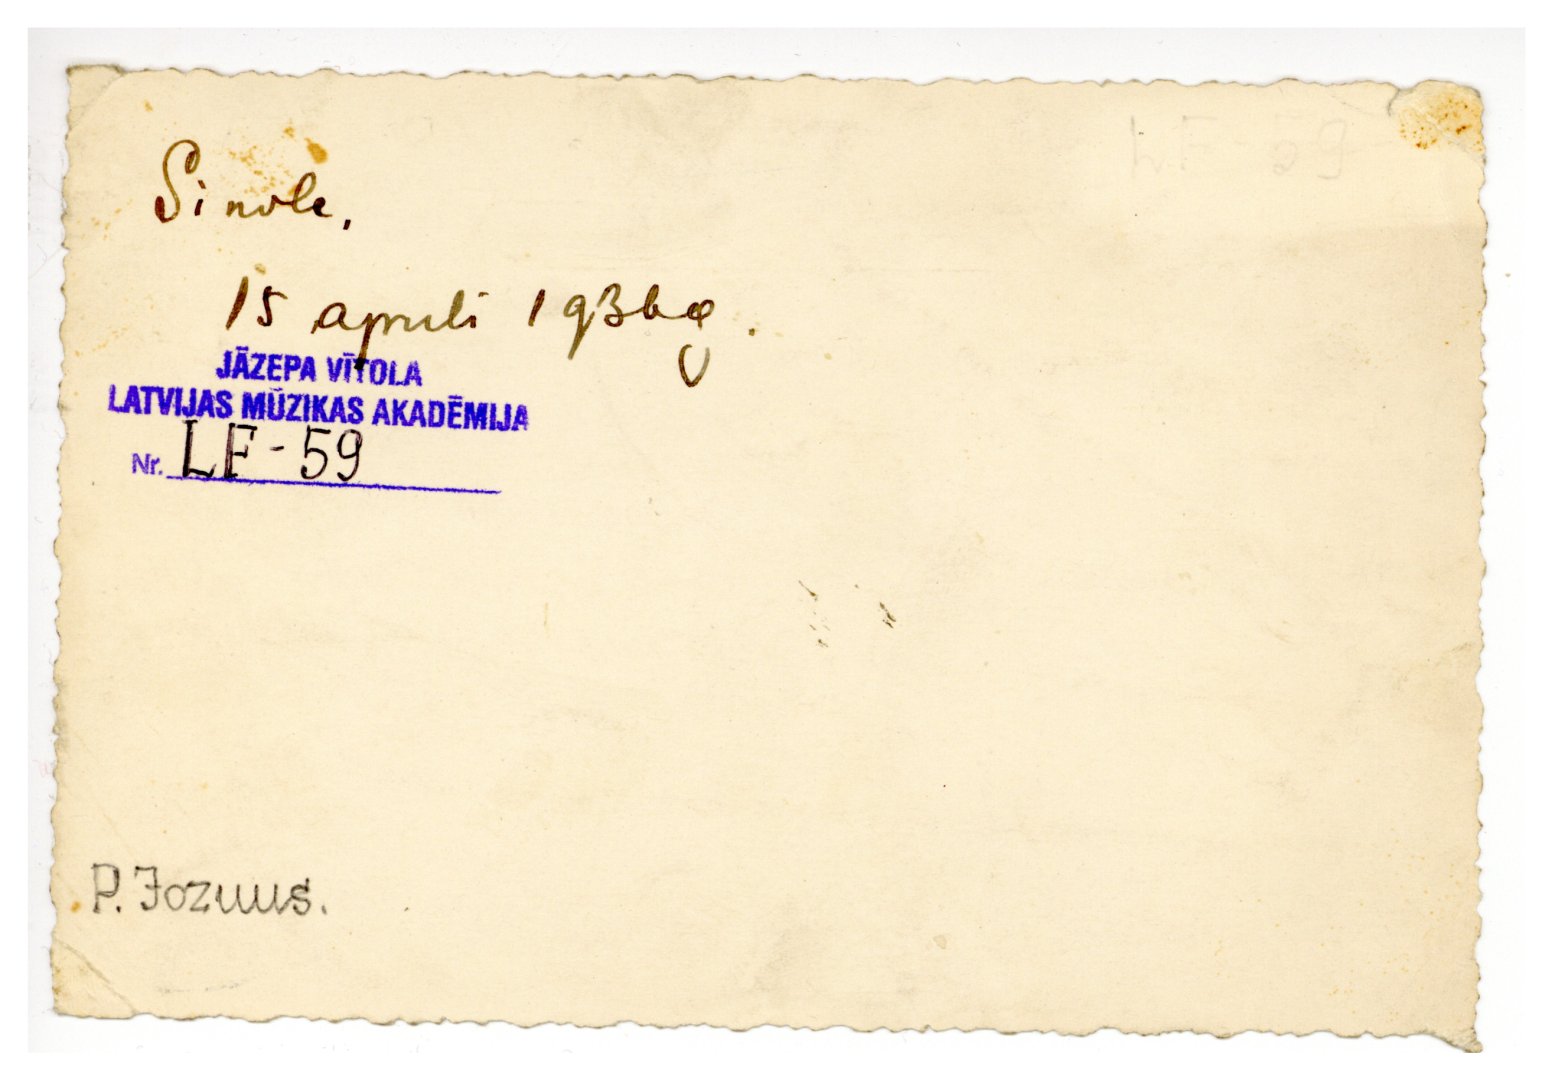 Sinole,
15 aprili 1936 g.
JĀZEPA VĪTOLA
LATVIJAS MŪZIKAS AKADĒMIJA
Nr. LF-59
P. Jozuus.